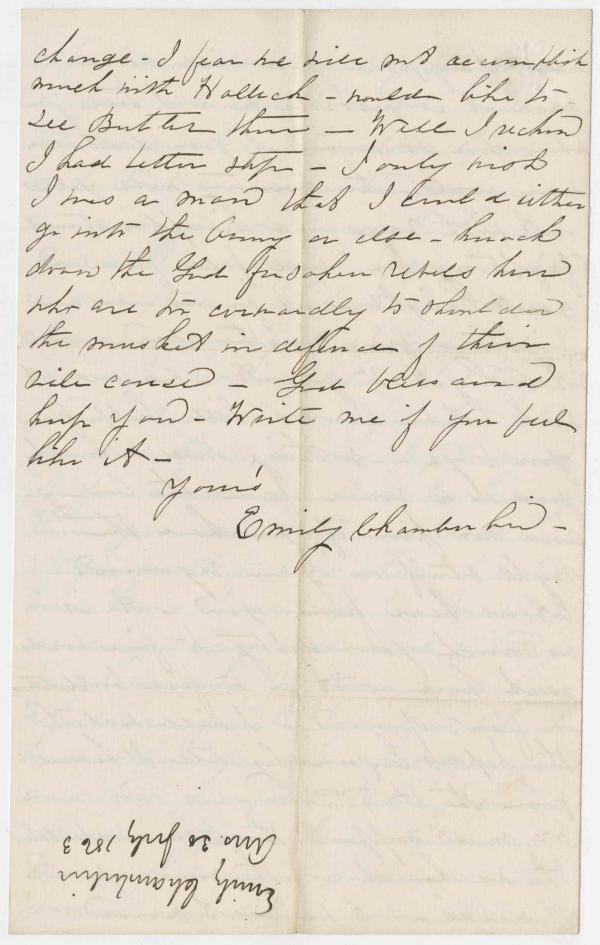 change - I fear we will not accomplish
much with Halleck - would like to
see Butler there - Well I reckon
I had better stop - I only wish
I was a man that I could either
go into the Army or else - knock
down the God forsaken rebels here
who are too cowardly to shoulder
the musket in defence of their
vile cause - God bless and
keep you - Write me if you feel
like it -
Yours
Emily Chamberlin -
Emily Chamberlin
Ans 30 July, 1863